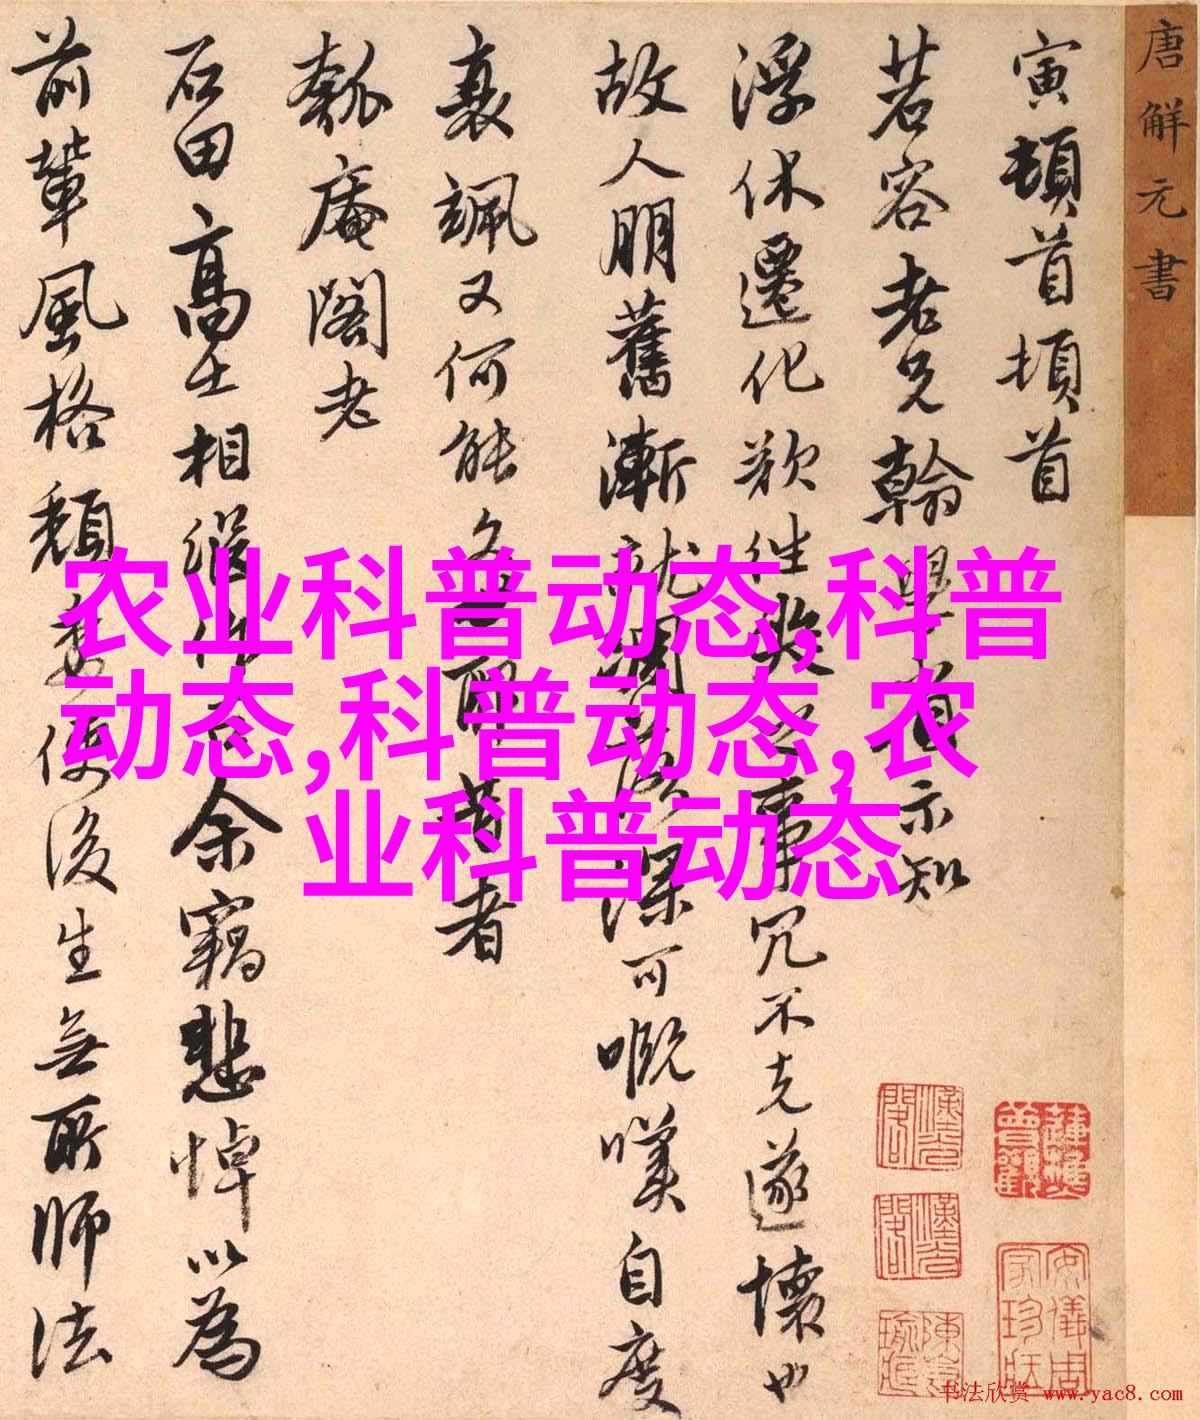 唐解元書
寅頓首頓首
若容老兄翰學有示知
浮休遷化欲往 之事冗不克遂懷也
故人朋舊漸就凋落深可嘅嘆自度
衰颯又何能久 耶昔者
瓠庵閣老
石田高士相 余竊悲悼以為
前輩風格頹 使後生無所師法
农业科普动态,科普
动态,科普动态,农
业科普动态
書法欣赏 www.yac8.com